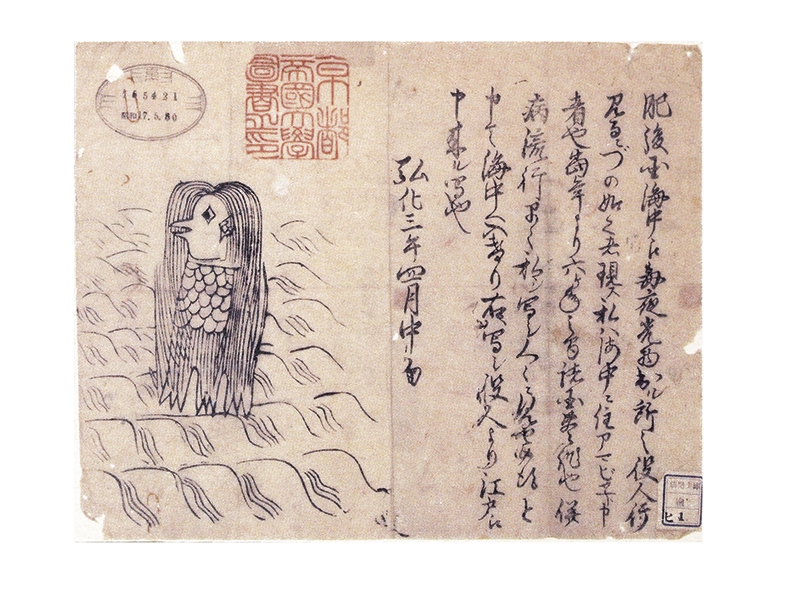 肥後国海中え毎夜光物出ル所之役人行
見るニづの如く者現ス私ハ海中ニ住アマビヱト申
者也当年より六ヶ年之間諸国豊作也併
病流行早々私ヲ写シ人々ニ見セ候得と
申て海中へ入けり右写シ役人より江戸え
申来ル写也
弘化三年四月中旬
京都
帝國大學
圖書之印
165421
昭和17.5.30
ヒ 1